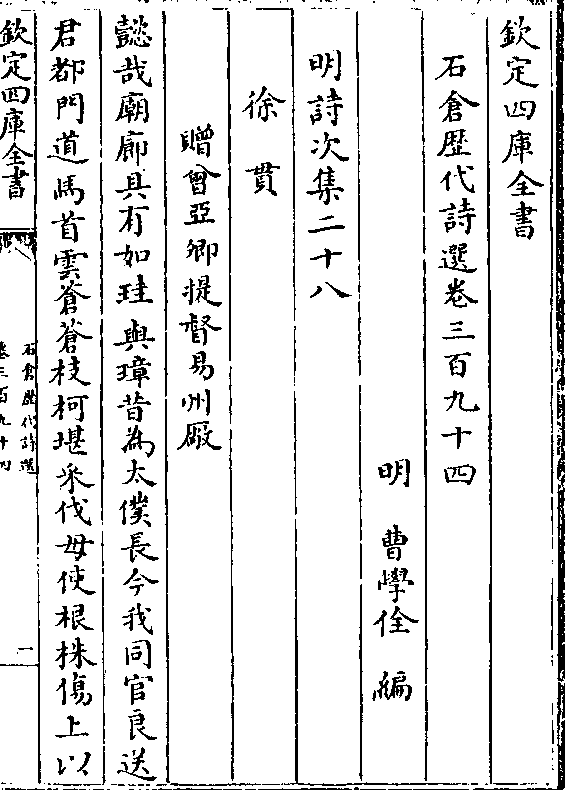 欽定四庫全書
石倉歴代詩選卷三百九十四
明　曹學佺　編
明詩次集二十八
徐貫
贈曾亞卿提督易州廠
懿哉廟廊具有如珪與璋昔為太僕長今我同官良送
君都門道馬首雲蒼蒼枝柯堪采伐毋使根株傷上以
欽定四庫全書
石倉歴代詩選
卷三百九十四
一